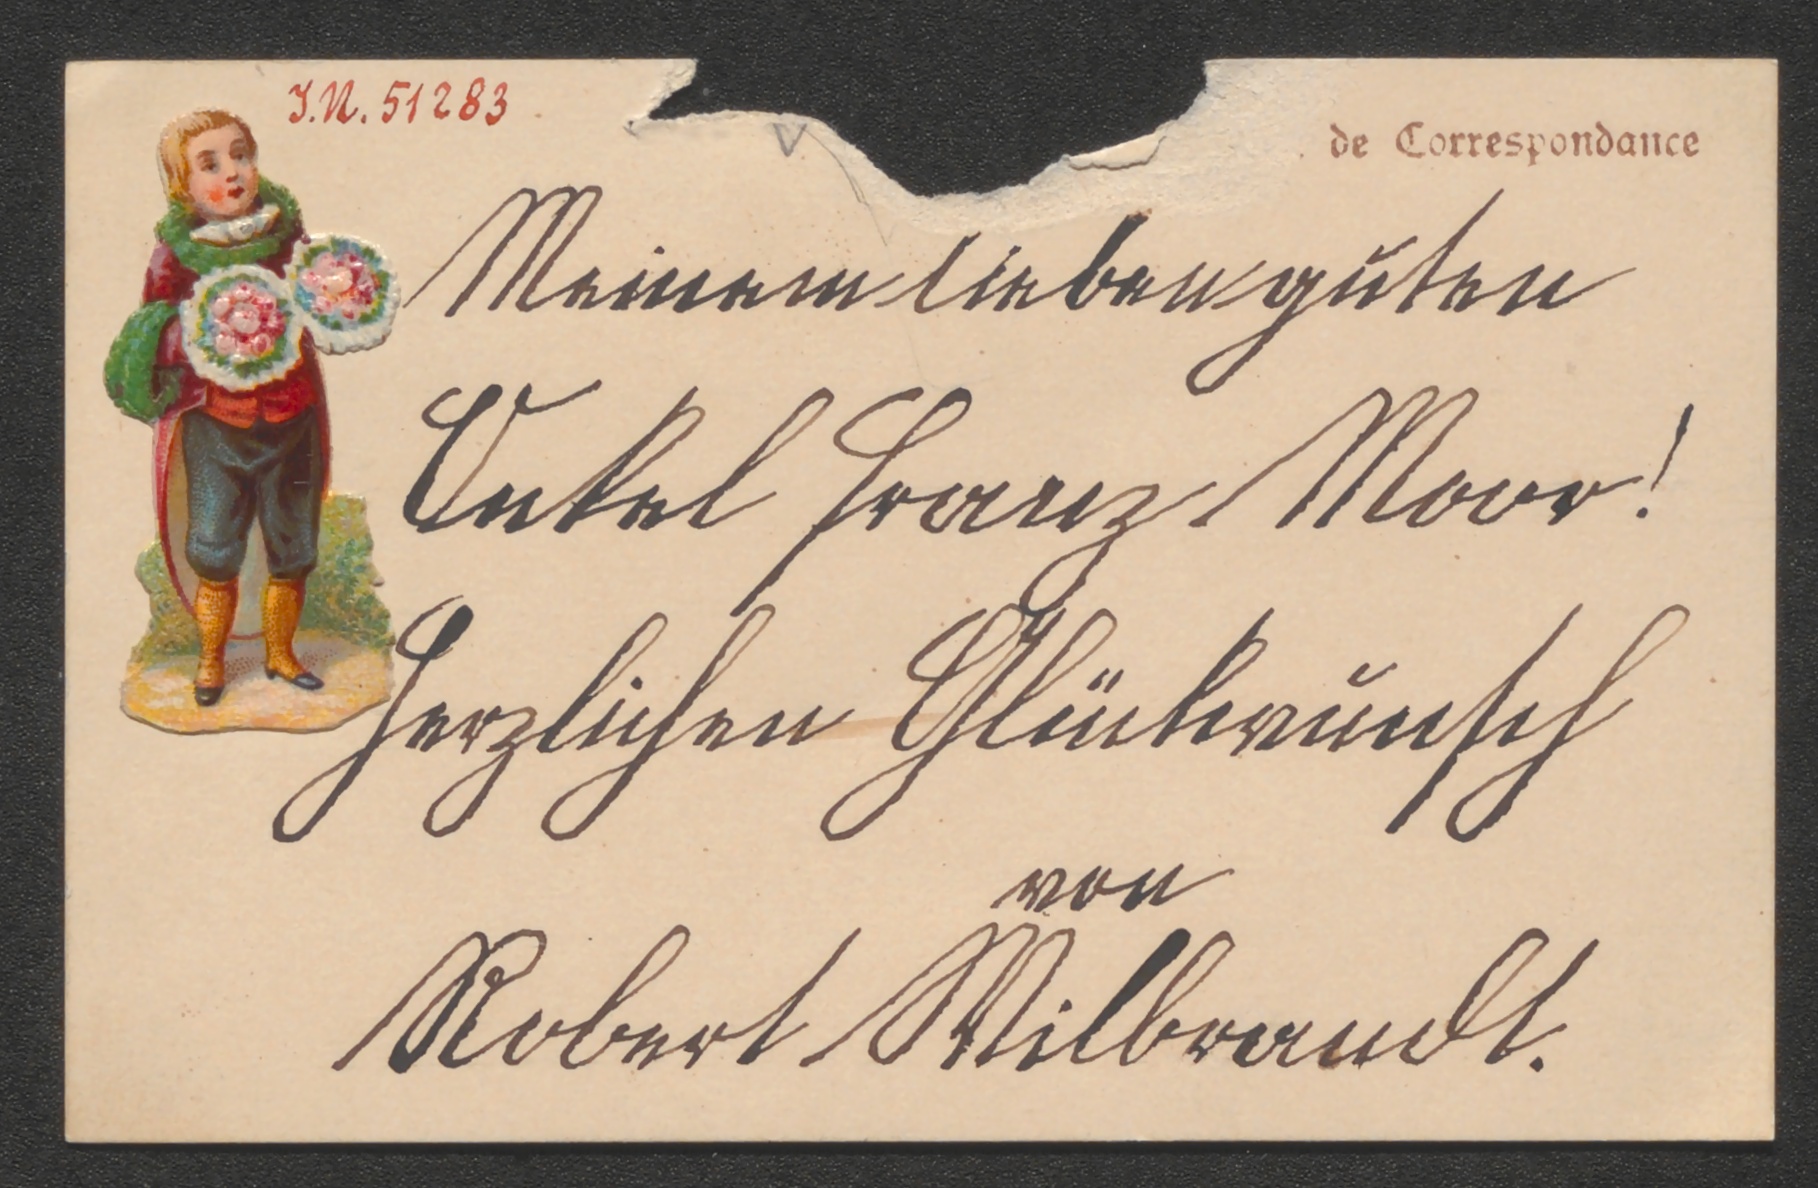 I.N. 51283
de Correspondance
Meinem lieben guten
Onkel Franz Moor!
Herzlichen Glückwunsch
von
Robert Wilbrandt.